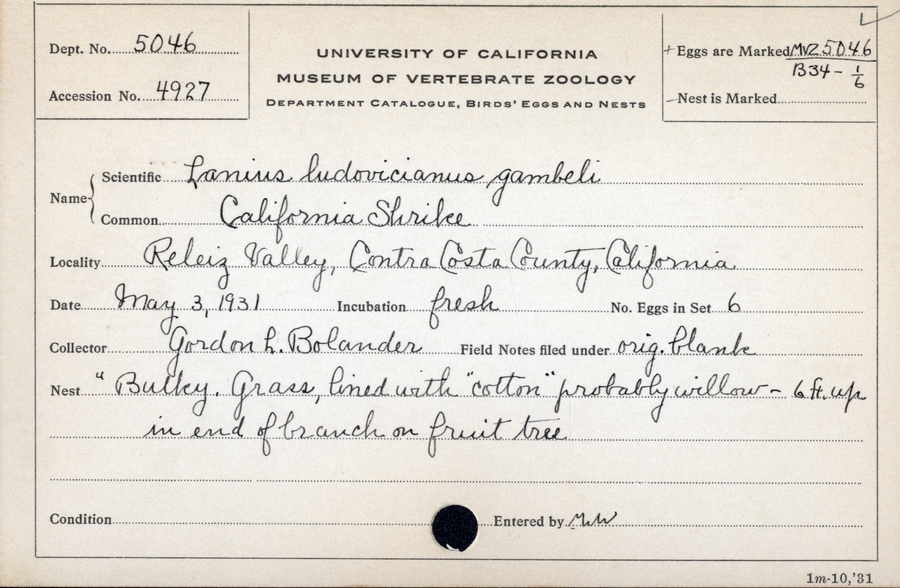 Dept. No. 5046
Accession No. 4927
UNIVERSITY OF CALIFORNIA
MUSEUM OF VERTEBRATE ZOOLOGY
DEPARTMENT CATALOGUE, BIRDS' EGGS AND NESTS
+ Eggs are Marked MVZ 5046
B34 - 1/6
– Nest is Marked
Name { Scientific Lanius ludovicianus gambeli
Common California Shrike
Locality Releiz Valley, Contra Costa County, California
Date May 3, 1931 Incubation fresh No. Eggs in Set 6
Collector Gordon L. Bolander Field Notes filed under orig. blank
Nest " Bulky. Grass, lined with "cotton" probably willow - 6 ft. up
in end of branch on fruit tree
Condition Entered by
1m-10,'31